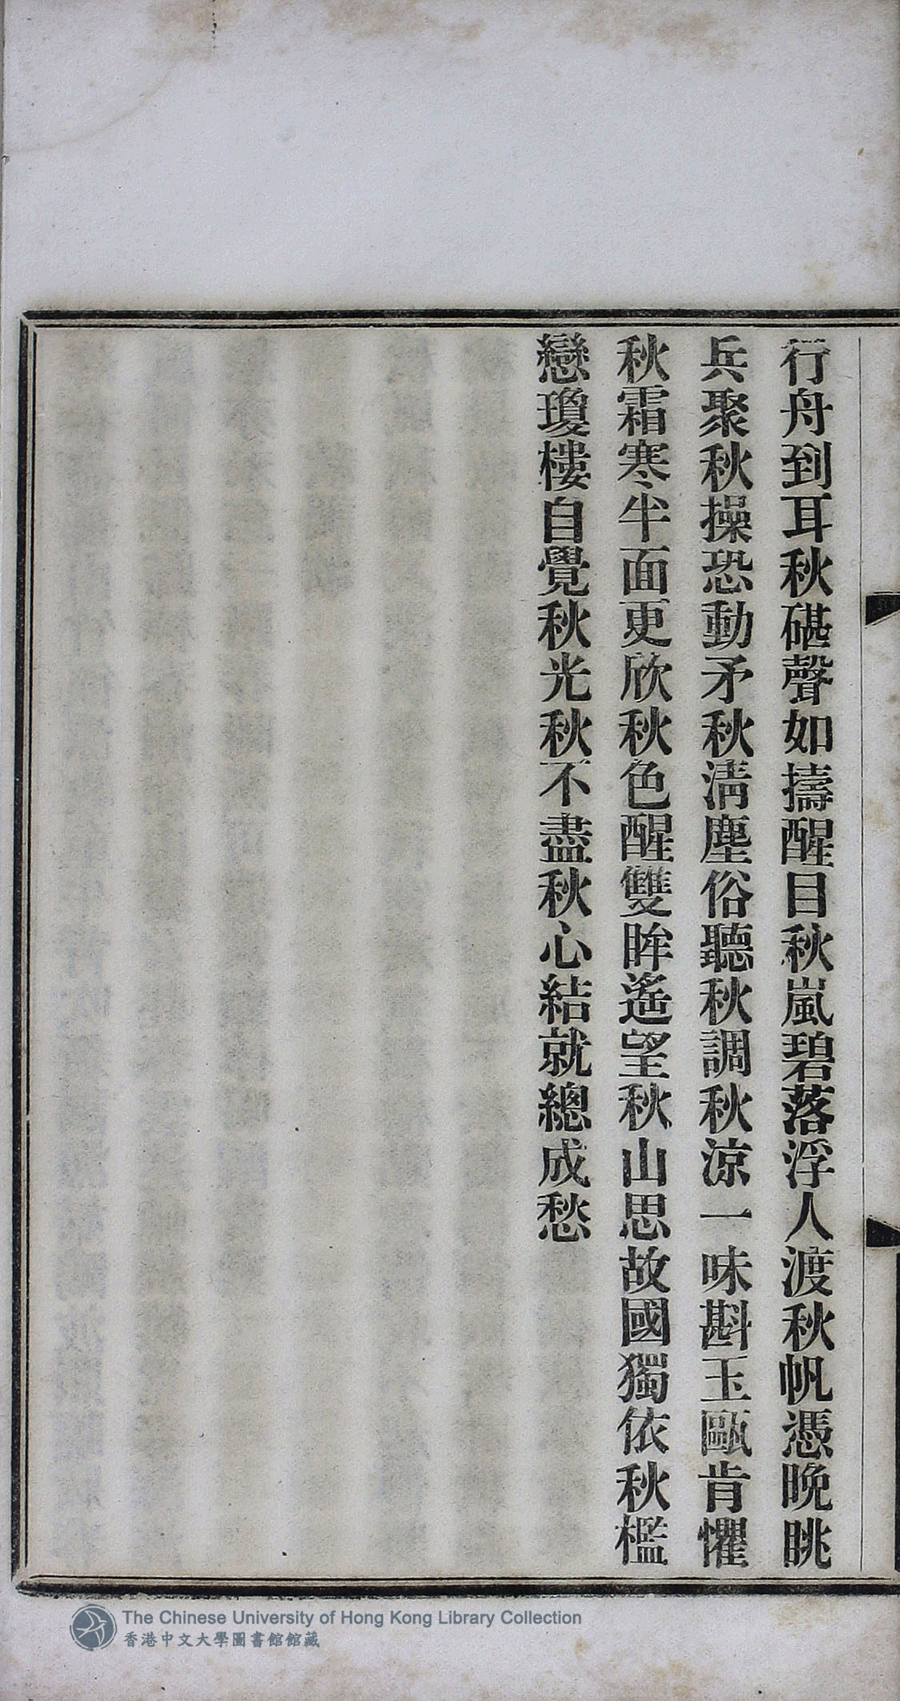 行舟到耳秋碪聲如擣醒目秋嵐碧落浮人渡秋帆憑晚眺
兵聚秋操恐動矛秋淸塵俗聽秋調秋涼一味斟玉甌肯懼
秋霜寒半面更欣秋色醒雙眸遙望秋山思故國獨依秋檻
戀瓊樓自覺秋光秋不盡秋心結就總成愁
The Chinese University of Hong Kong Library Collection
香港中文大學圖書館館藏